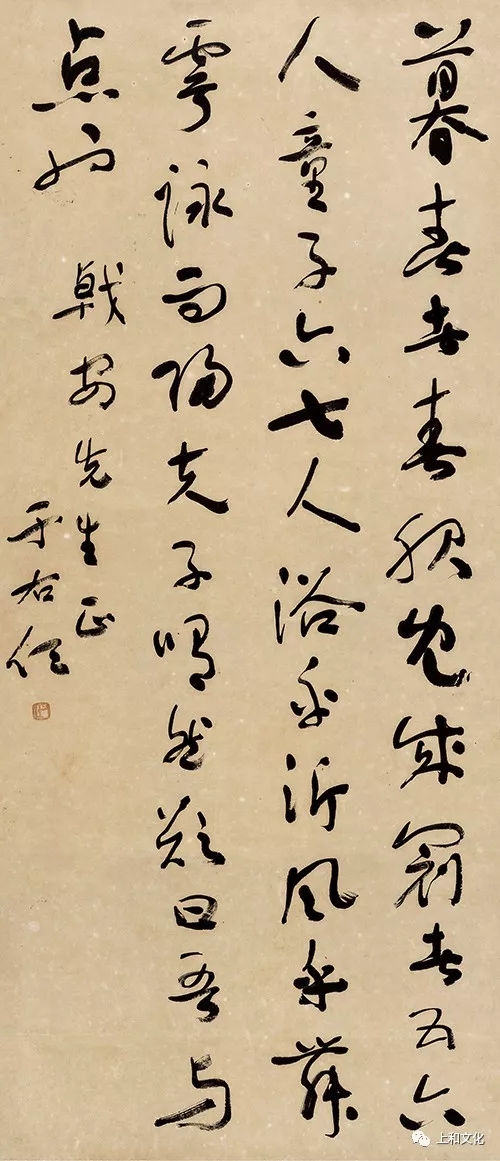 暮春者春服既成冠者五六
人童子六七人浴乎沂風乎舞
雩詠而歸夫子喟然歎曰吾与
点也
戟安先生正
于右任
上和文化